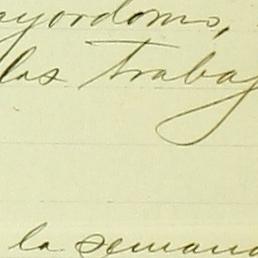 ayordomo,
las trabaj
la semana